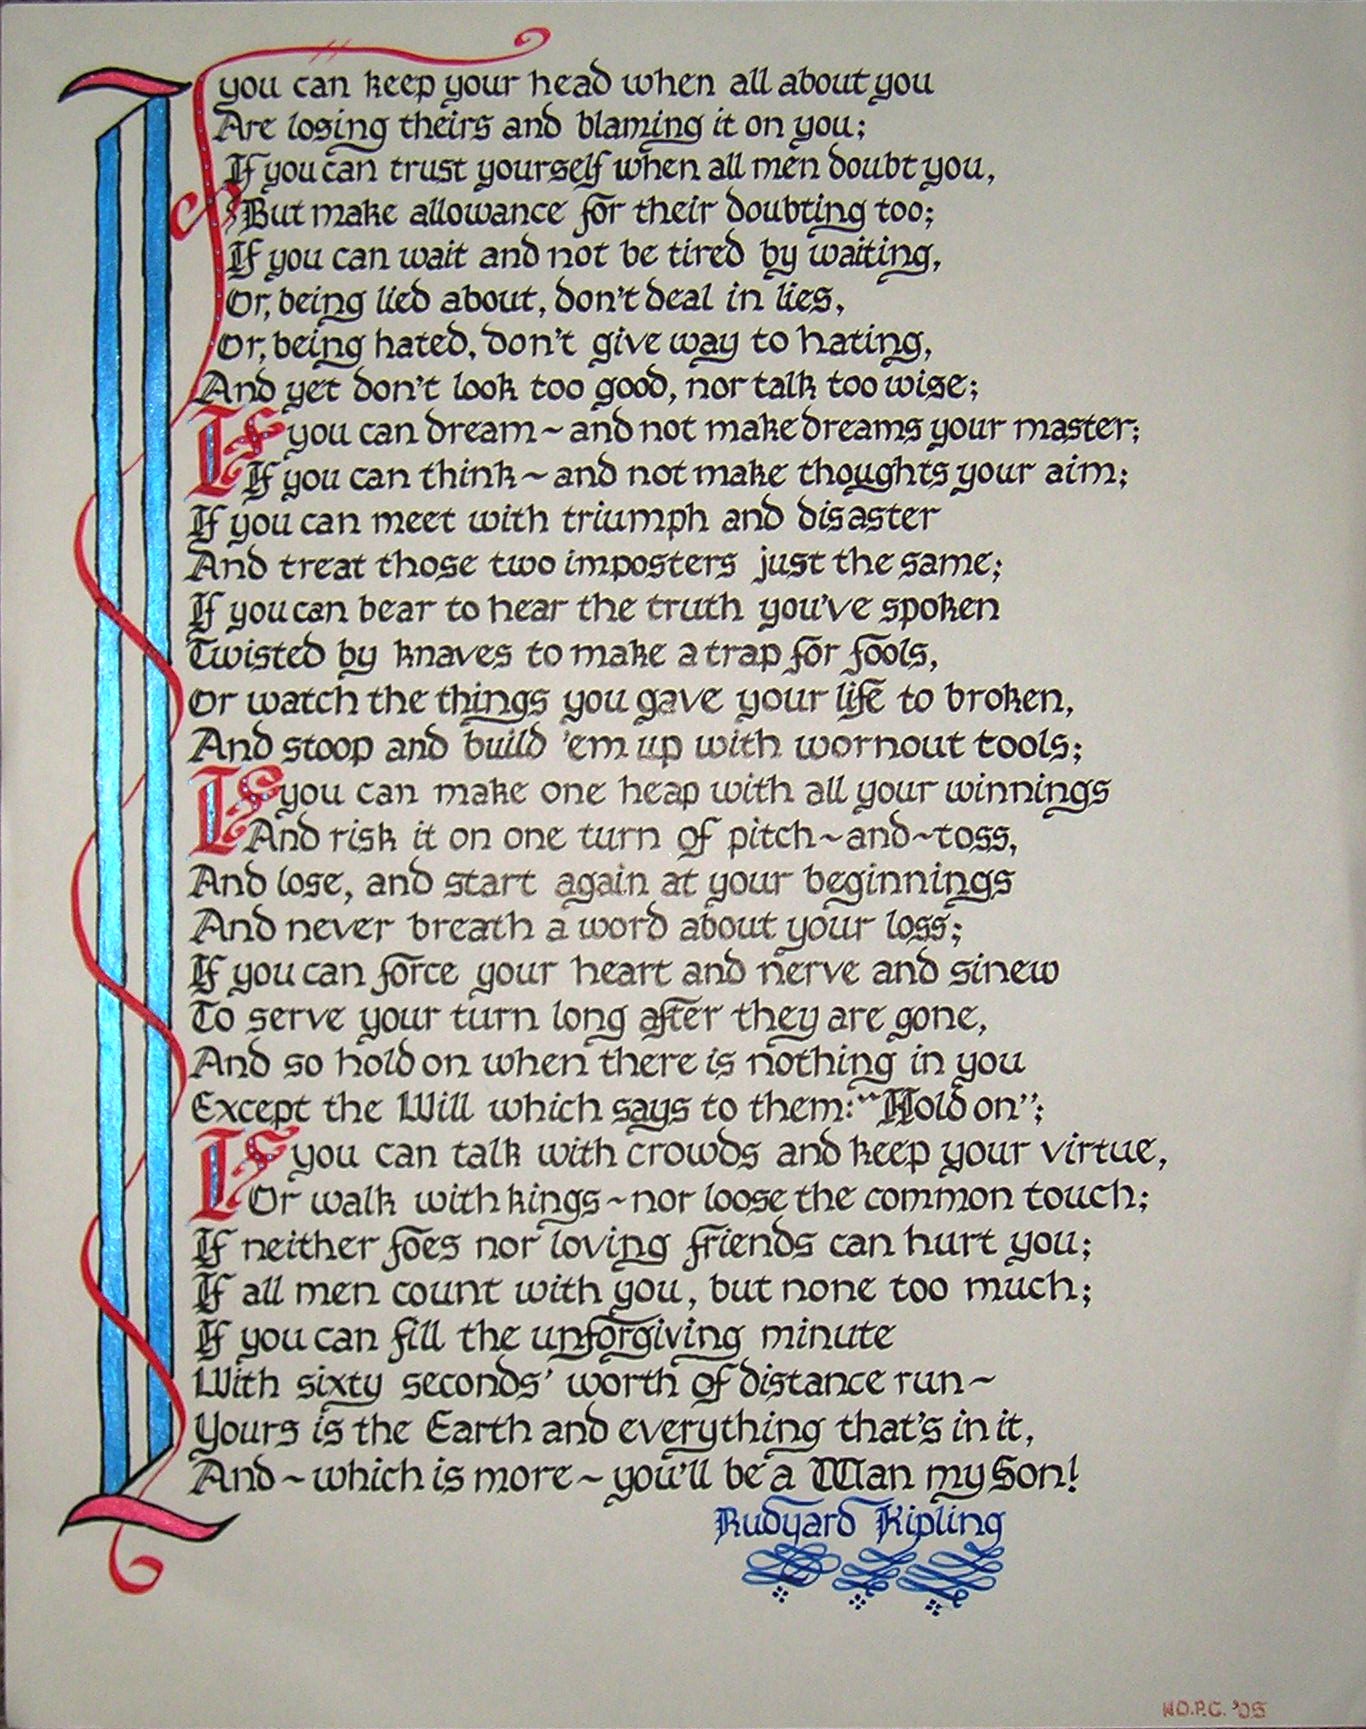 If you can keep your head when all about you
Are losing theirs and blaming it on you;
If you can trust yourself when all men doubt you,
But make allowance for their doubting too;
If you can wait and not be tired by waiting,
Or, being lied about, don't deal in lies,
Or, being hated, don't give way to hating,
And yet don't look too good, nor talk too wise;
If you can dream~and not make dreams your master;
If you can think~and not make thoughts your aim;
If you can meet with triumph and disaster
And treat those two imposters just the same;
If you can bear to hear the truth you've spoken
Twisted by knaves to make a trap for fools,
Or watch the things you gave your life to broken,
And stoop and build 'em up with wornout tools;
If you can make one heap with all your winnings
And risk it on one turn of pitch~and~toss,
And lose, and start again at your beginnings
And never breath a word about your loss;
If you can force your heart and nerve and sinew
To serve your turn long after they are gone,
And so hold on when there is nothing in you
Except the Will which says to them: "Hold on";
If you can talk with crowds and keep your virtue,
Or walk with kings~nor loose the common touch;
If neither foes nor loving friends can hurt you;
If all men count with you, but none too much;
If you can fill the unforgiving minute
With sixty seconds' worth of distance run~
Yours is the Earth and everything that's in it,
And~which is more~you'll be a Man my Son!
Rudyard Kipling
W.D.P.C. '05